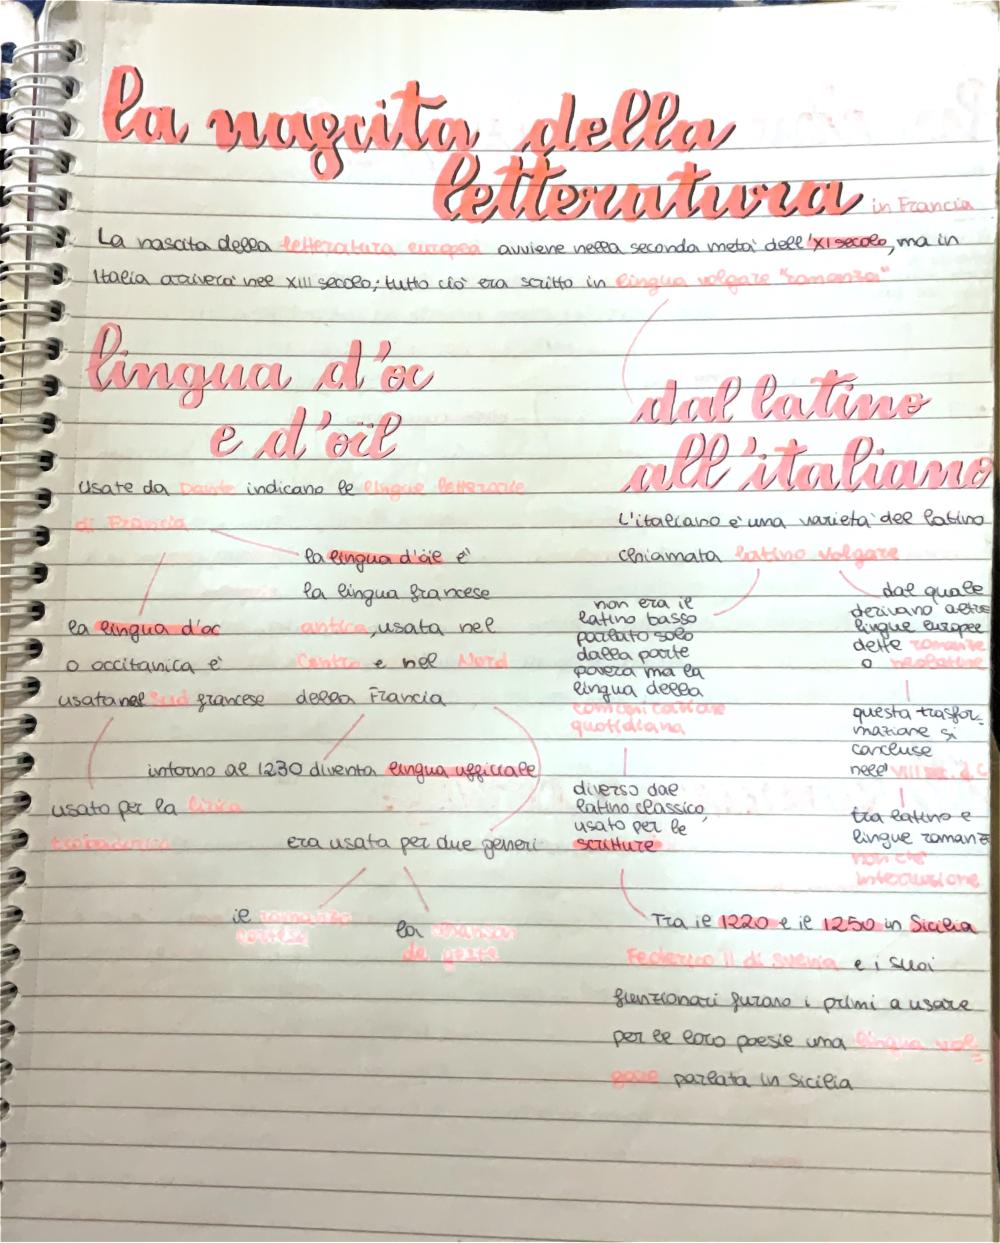 la nascita della
letteratura in Francia
La nascita della letteratura europea avviene nella seconda metà dell'XI secolo, ma in
Italia arriverà nel XIII secolo; tutto ciò era scritto in lingua volgare "romanza"
lingua d'oc
e d'oïl
Usate da Dante indicano le lingue letterarie
di Francia
la lingua d'oc
o occitanica è
usata nel Sud francese
la lingua d'öil è
la lingua francese
antica, usata nel
Centro e nel Nord
della Francia
intorno al 1230 diventa lingua ufficiale
usato per la lirica
trobadorica
era usata per due generi
il romanzo
cortese
la chanson
de geste
dal latino
all'italiano
L'italiano è una varietà del latino
chiamata latino volgare
non era il
latino basso
parlato solo
dalla parte
povera ma la
lingua della
comunicazione
quotidiana
diverso dal
latino classico,
usato per le
scritture
dal quale
derivano altre
lingue europee
dette romanze
o neolatine
questa trasfor-
mazione si
concluse
nell' VIII sec. d.C
tra latino e
lingue romanze
non c'è
interruzione
Tra il 1220 e il 1250 in Sicilia
Federico II di Svevia e i suoi
funzionari furano i primi a usare
per le loro poesie una lingua vol=
gare parlata in Sicilia